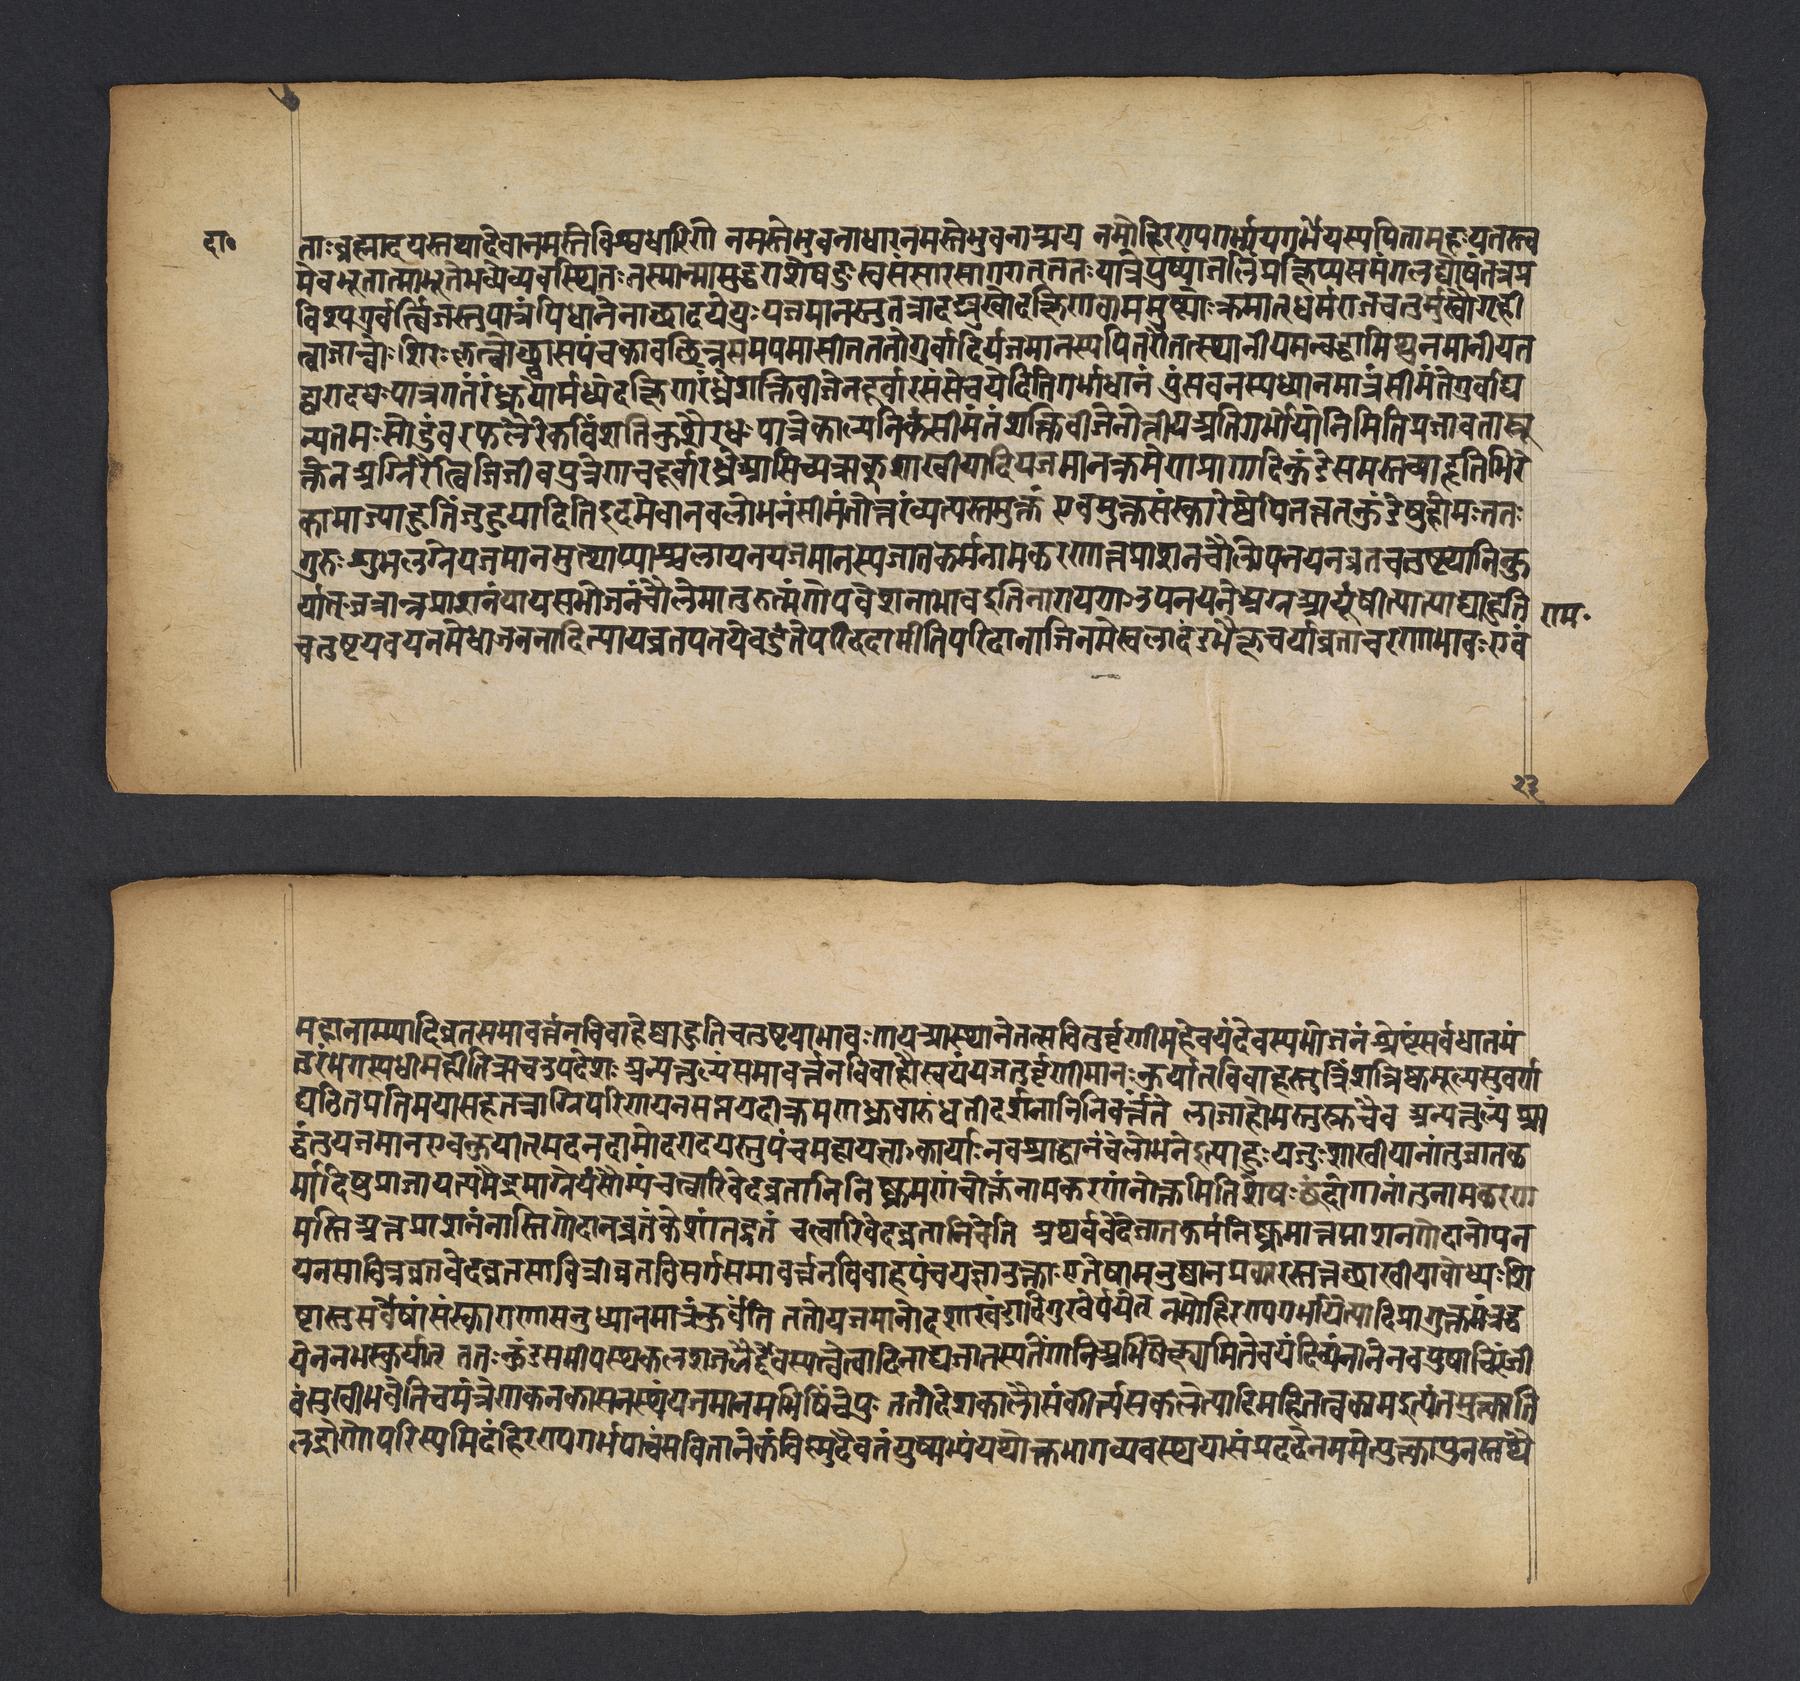 दा॰
ताःब्रह्मादयस्तथादेवानमस्तेविश्वधारिणे नमस्तेभुवनाधारनमस्तेभुवनाश्रय नमोहिरण्यगर्भायगर्भेयस्यपितामहःयतस्त्व
मेवभूतात्माभूतेभूतेव्यवस्थितःतस्मान्मामुद्धराशेषदुःखसंसारसागरात्ततःपात्रेपुष्पांजलिंप्रक्षिप्यसमंगलघोषंतत्रप्र
विश्यगुर्वर्त्विजस्तुपात्रंपिधानेनाच्छादयेयुःयजमानस्तुतत्रोदङ्मुखोदक्षिणवाममुष्ट्योःक्रमात्धर्मराजचतुर्मुखौगृही
त्वाजान्वोःशिरःकृत्वाश्वासपंचकावच्छिन्नसमयमासीतततोगुर्वादिर्यजमानस्यपितरौतत्स्थानीयमन्यद्वामिथुनमानीयत
द्वारादधःपात्रगतरंध्रयोर्मध्येदक्षिणरंध्रेशक्तिबीजेनदूर्वारसंसेचयेदितिगर्भाधानं पुंसवनस्यध्यानमात्रंसीमंतेगुर्वाद्य
न्यतमःसौदुंबरफलैरेकविंशतिकुशैरधःपात्रेकाल्पनिकंसीमंतंशक्तिबीजेनोन्नीयअतिगर्भोयोनिमितिप्रजावतासू
क्तेनअग्निरेत्विजिजीवपुत्रेणचदूर्वारंध्रेआसिच्यऋक्शाखीयादियजमानक्रमेणप्रागादिकुंडेसमस्तव्याहृतिभिरे
कामाज्याहुतिंजुहुयादितिइदमेवानवलोभनंसीमंतोन्नंव्यत्यस्तमुक्तं एवमुक्तसंस्कारेष्वपितत्तत्कुंडेषुहोमःततः
गुरुःशुभलग्नेयजमानमुत्थाप्याश्वलायनयजमानस्यजातकर्मनामकरणान्नप्राशनचौलोपनयनव्रतचतुष्टयानिकु
र्यात्अत्रान्नप्राशनंपायसभोजनंचौलेमातुरुत्संगोपवेशनाभावइतिनारायणःउपनयनेअग्नआयूंषीत्यात्याद्याहुति
णम॰
चतुष्टयवयनमेधाजननादित्यायव्रतपतयेवटुंतेपरिददामीतिपरिदानाजिनमेखलादंडभैक्ष्यचर्याव्रताचरणाभावःएवं
२३
महानाम्न्यादिव्रतसमावर्त्तनविवाहेष्वाहुतिचतुष्टयाभावःगायत्र्यास्थानेतत्सवितुर्वृणीमहेवयंदेवस्यभोजनंश्रेष्ठंसर्वधातमं
तुरंभगस्यधीमहीतिऋचउपदेशःअन्यत्तुल्यंसमावर्त्तनविवाहौस्वयंयजतुर्वृणीमानःकुर्यात्विवाहस्तुत्रिंशन्निष्कमूल्यसुवर्ण
घटितप्रतिमयासहतत्राग्निपरिणयनसप्तपदीक्रमणध्रुवारुंधतीदर्शनानिनिवर्त्तंते लाजाहोमस्तुस्रुचैव अन्यत्तुल्यं श्रा
द्धंतुयजमानएवकुर्यात्मदनदामोदरादयस्तुपंचमहायज्ञाःकार्याःनवश्राद्धानंचलोभनेइत्याहुःयजुःशाखीयानांतुजातक
र्मादिषुप्राजापत्यमैंद्रमाग्नेयंसौम्यंचत्वारिवेदव्रतानिनिष्क्रमणंचोक्तंनामकरणंनोक्तमितिशेषःछंदोगानांतुनामकरण
मस्तिअन्नप्राशनंनास्तिगोदानव्रतंकेशांतव्रतं चत्वारिवेदव्रतानिचेति अथर्ववेदेजातकर्मनिष्क्रमान्नप्राशनगोदानोपन
यनसावित्रव्रतवेदव्रतसावित्रीव्रतविसर्गसमावर्त्तनविवाहपंचयज्ञाउक्ताःएतेषामनुष्ठानप्रकारस्तत्तच्छाखीयाबोध्यःशि
ष्टास्तुसर्वेषांसंस्काराणामनुध्यानमात्रंकुर्वंति ततोयजमानोदशाखंडादिगुरवेर्पयेत् नमोहिरण्यगर्भायेत्यादिप्रागुक्तमंत्रद्व
येननमस्कुर्यात् ततःकुंडसमीपस्थकलशजलैर्देवस्यत्वेत्यादिनाद्यजातस्यतेंगानिअभिषेक्ष्यामितेवयंदिव्यंनानेनवपुषाचिरंजी
वंसुखीभवेतिचमंत्रेणकनकासनस्थंयजमानमभिषिंचेयुः ततोदेशकालौसंकीर्त्यसकलेत्यादिमहितत्वकामइत्यंतमुक्त्वाति
लद्रोणोपरिस्थमिदंहिरण्यगर्भपात्रंसवितानेकंविष्णुदैवतंयुष्मभ्यंयथोक्तभागव्यवस्थयासंप्रददेनममेत्युक्त्वापुनस्तथै